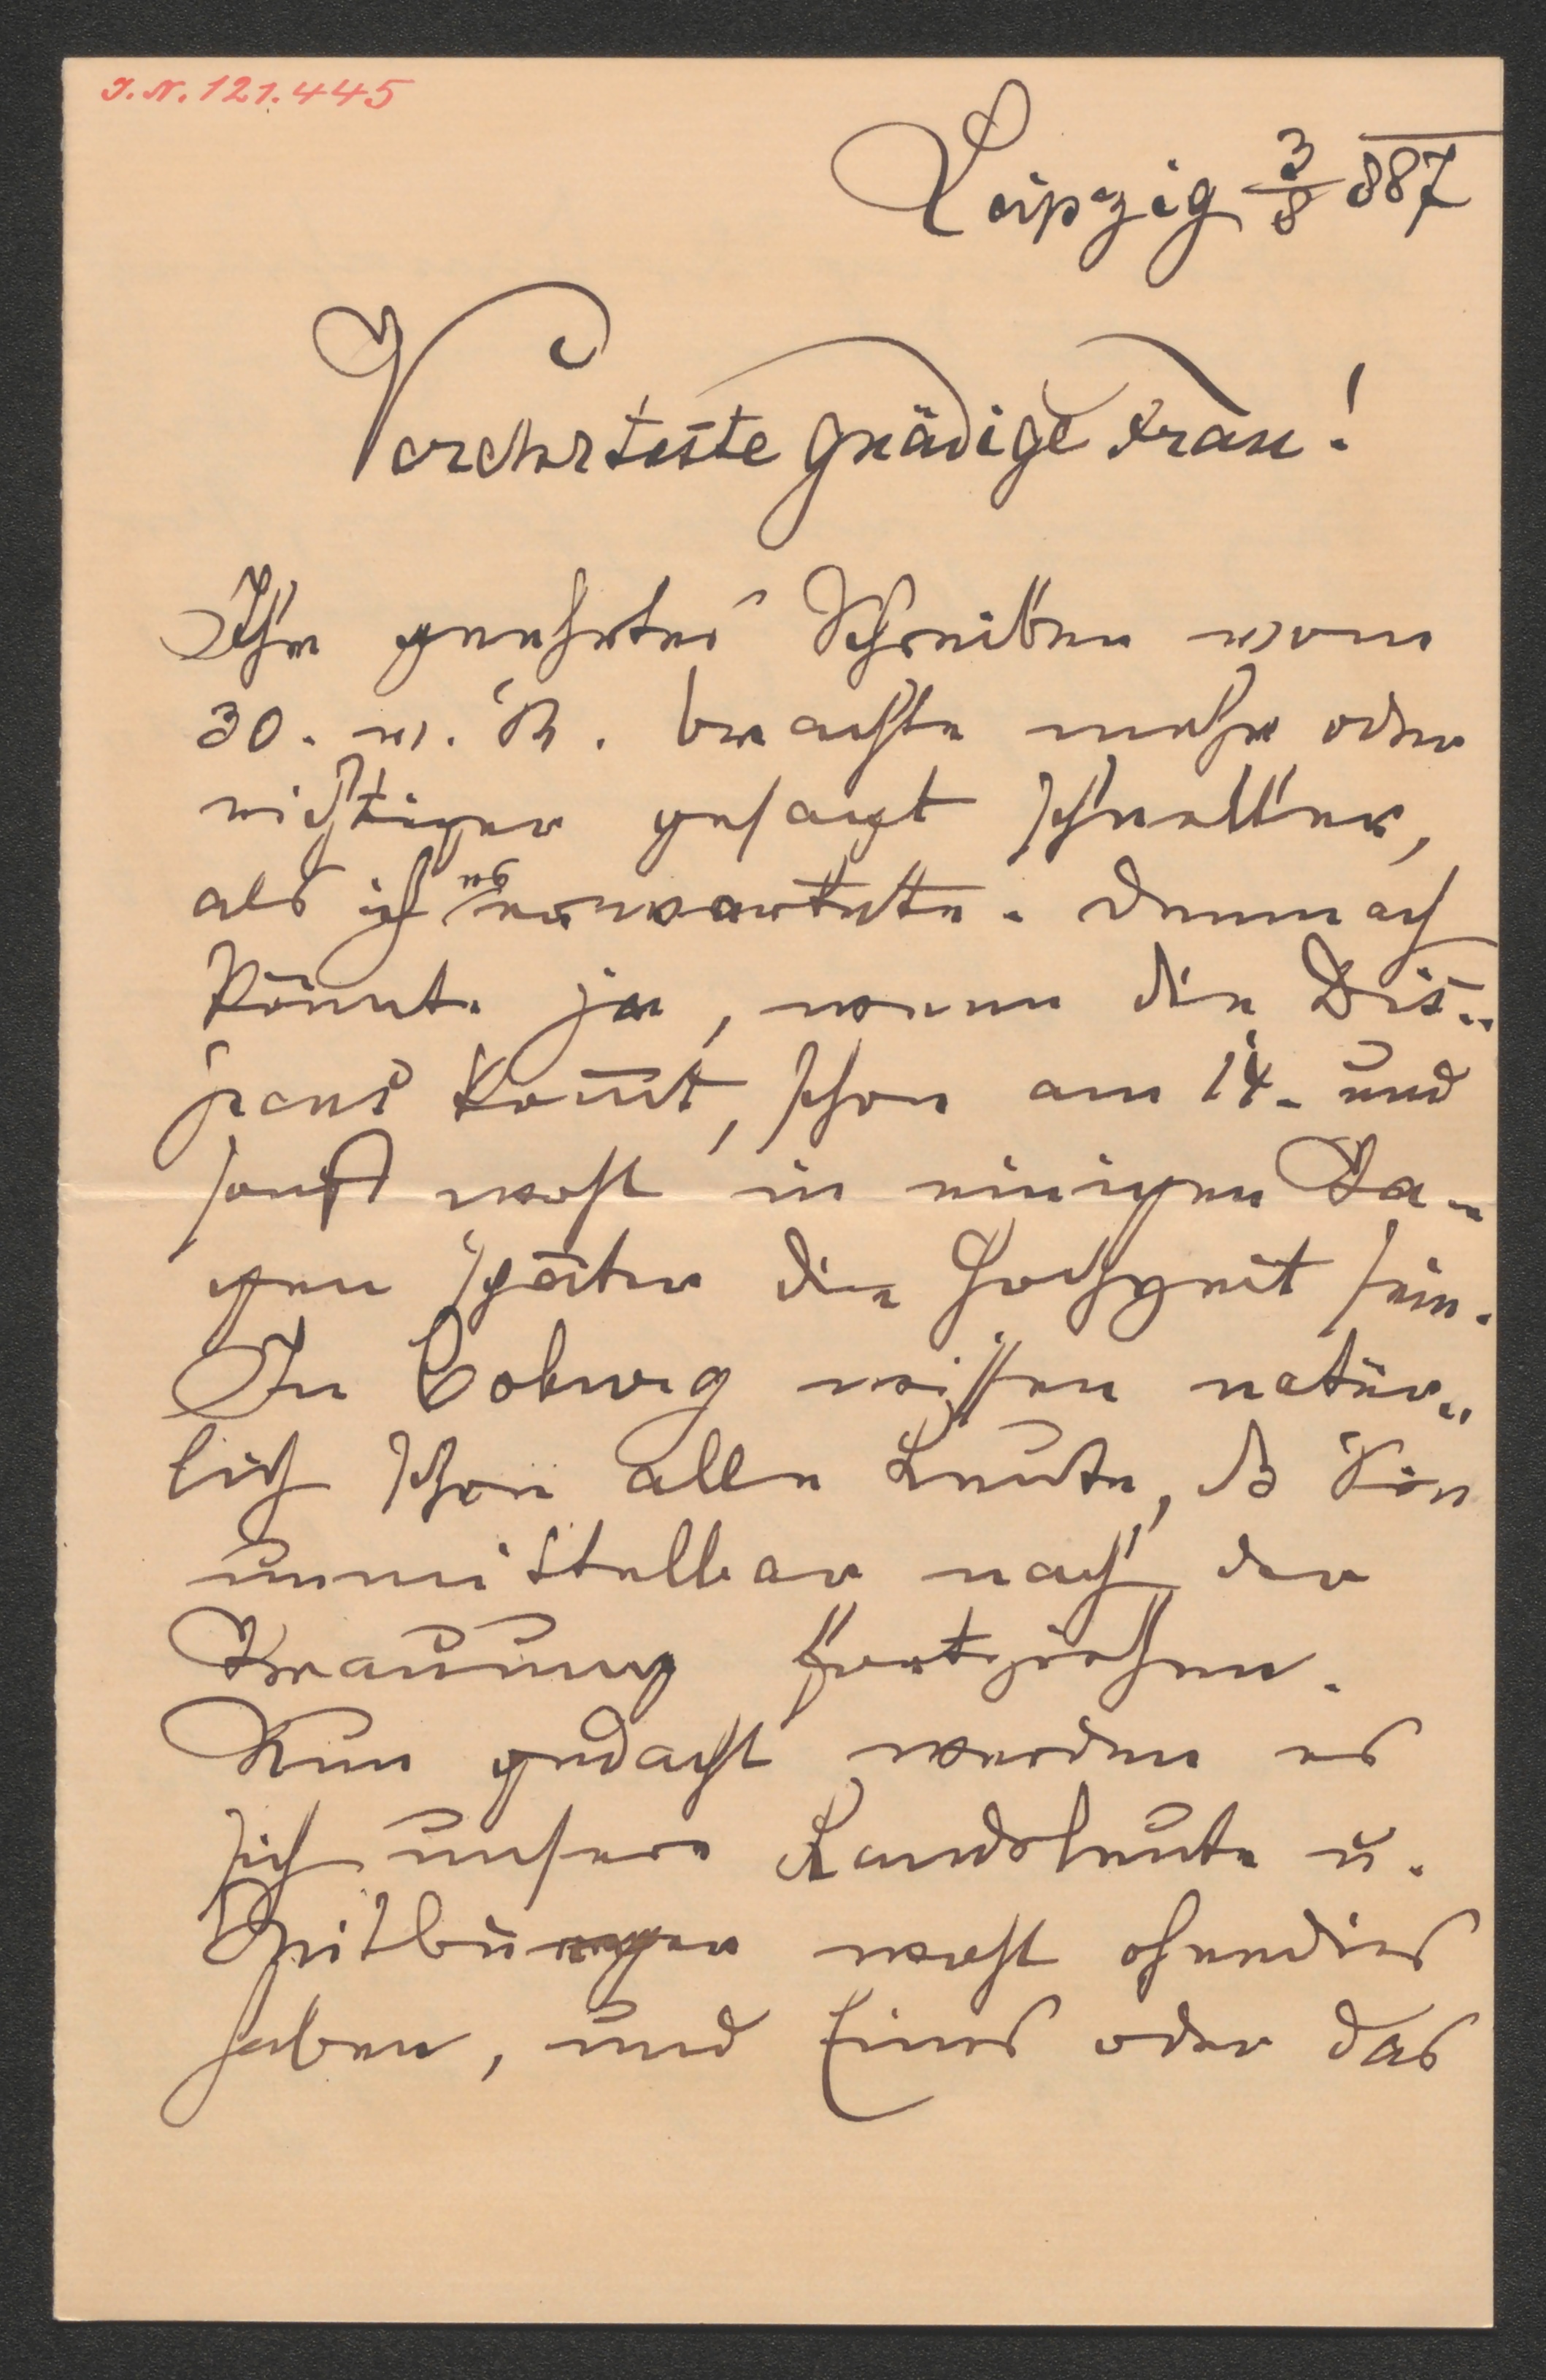 J.N. 121.445
Leipzig 3/8 887
Verehrteste gnädige Frau!
Ihr geehrtes Schreiben vom
30. v. M. brachte mehr oder
richtiger gesagt schneller,
als ich es erwartete. Demnach
könnte ja, wenn die Dis-
pens kom̅t, schon am 14. und
sonst wohl in einigen Ta-
gen später die Hochzeit sein.
In Coburg wissen natür-
lich schon alle Leute, dß Sie
unmittelbar nach der
Trauung fortziehen.
Nun gedacht werden es
sich unsere Landsleute u.
Mitbürger wohl ohnedies
haben, und Eines oder das